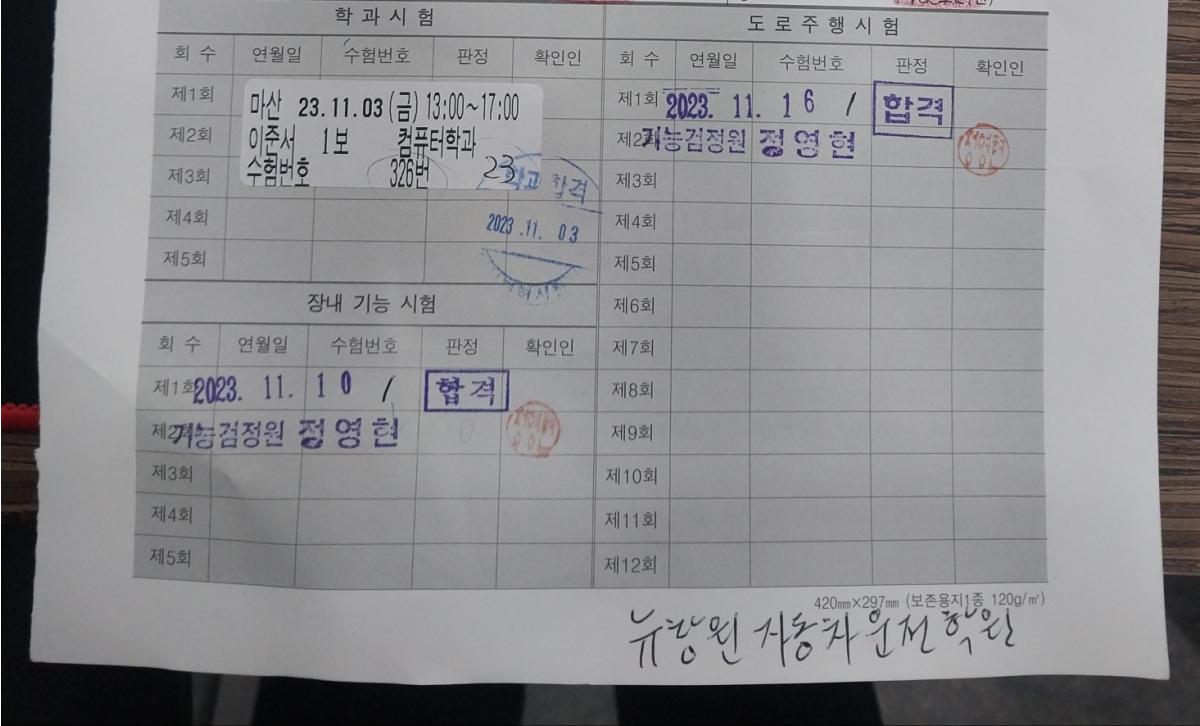 학 과 시 험
회 수 연월일 수험번호 판정 확인인
제1회
마산 23.11.03 (금) 13:00~17:00
제2회
이준서 1보 컴퓨터학과
제3회
수험번호 326번 23
학과 합격
제4회
2023.11. 03
제5회
장내 기능 시험
회 수 연월일 수험번호 판정 확인인
제1회 2023. 11. 10 / 합격
제2 기능검정원 정영현
제3회
제4회
제5회
도 로 주 행 시 험
회 수 연월일 수험번호 판정 확인인
제1회 2023. 11. 16 / 합격
제2 기능검정원 정영현
제3회
제4회
제5회
제6회
제7회
제8회
제9회
제10회
제11회
제12회
420㎜×297㎜ (보존용지1종 120g/㎡)
뉴창원 자동차운전학원